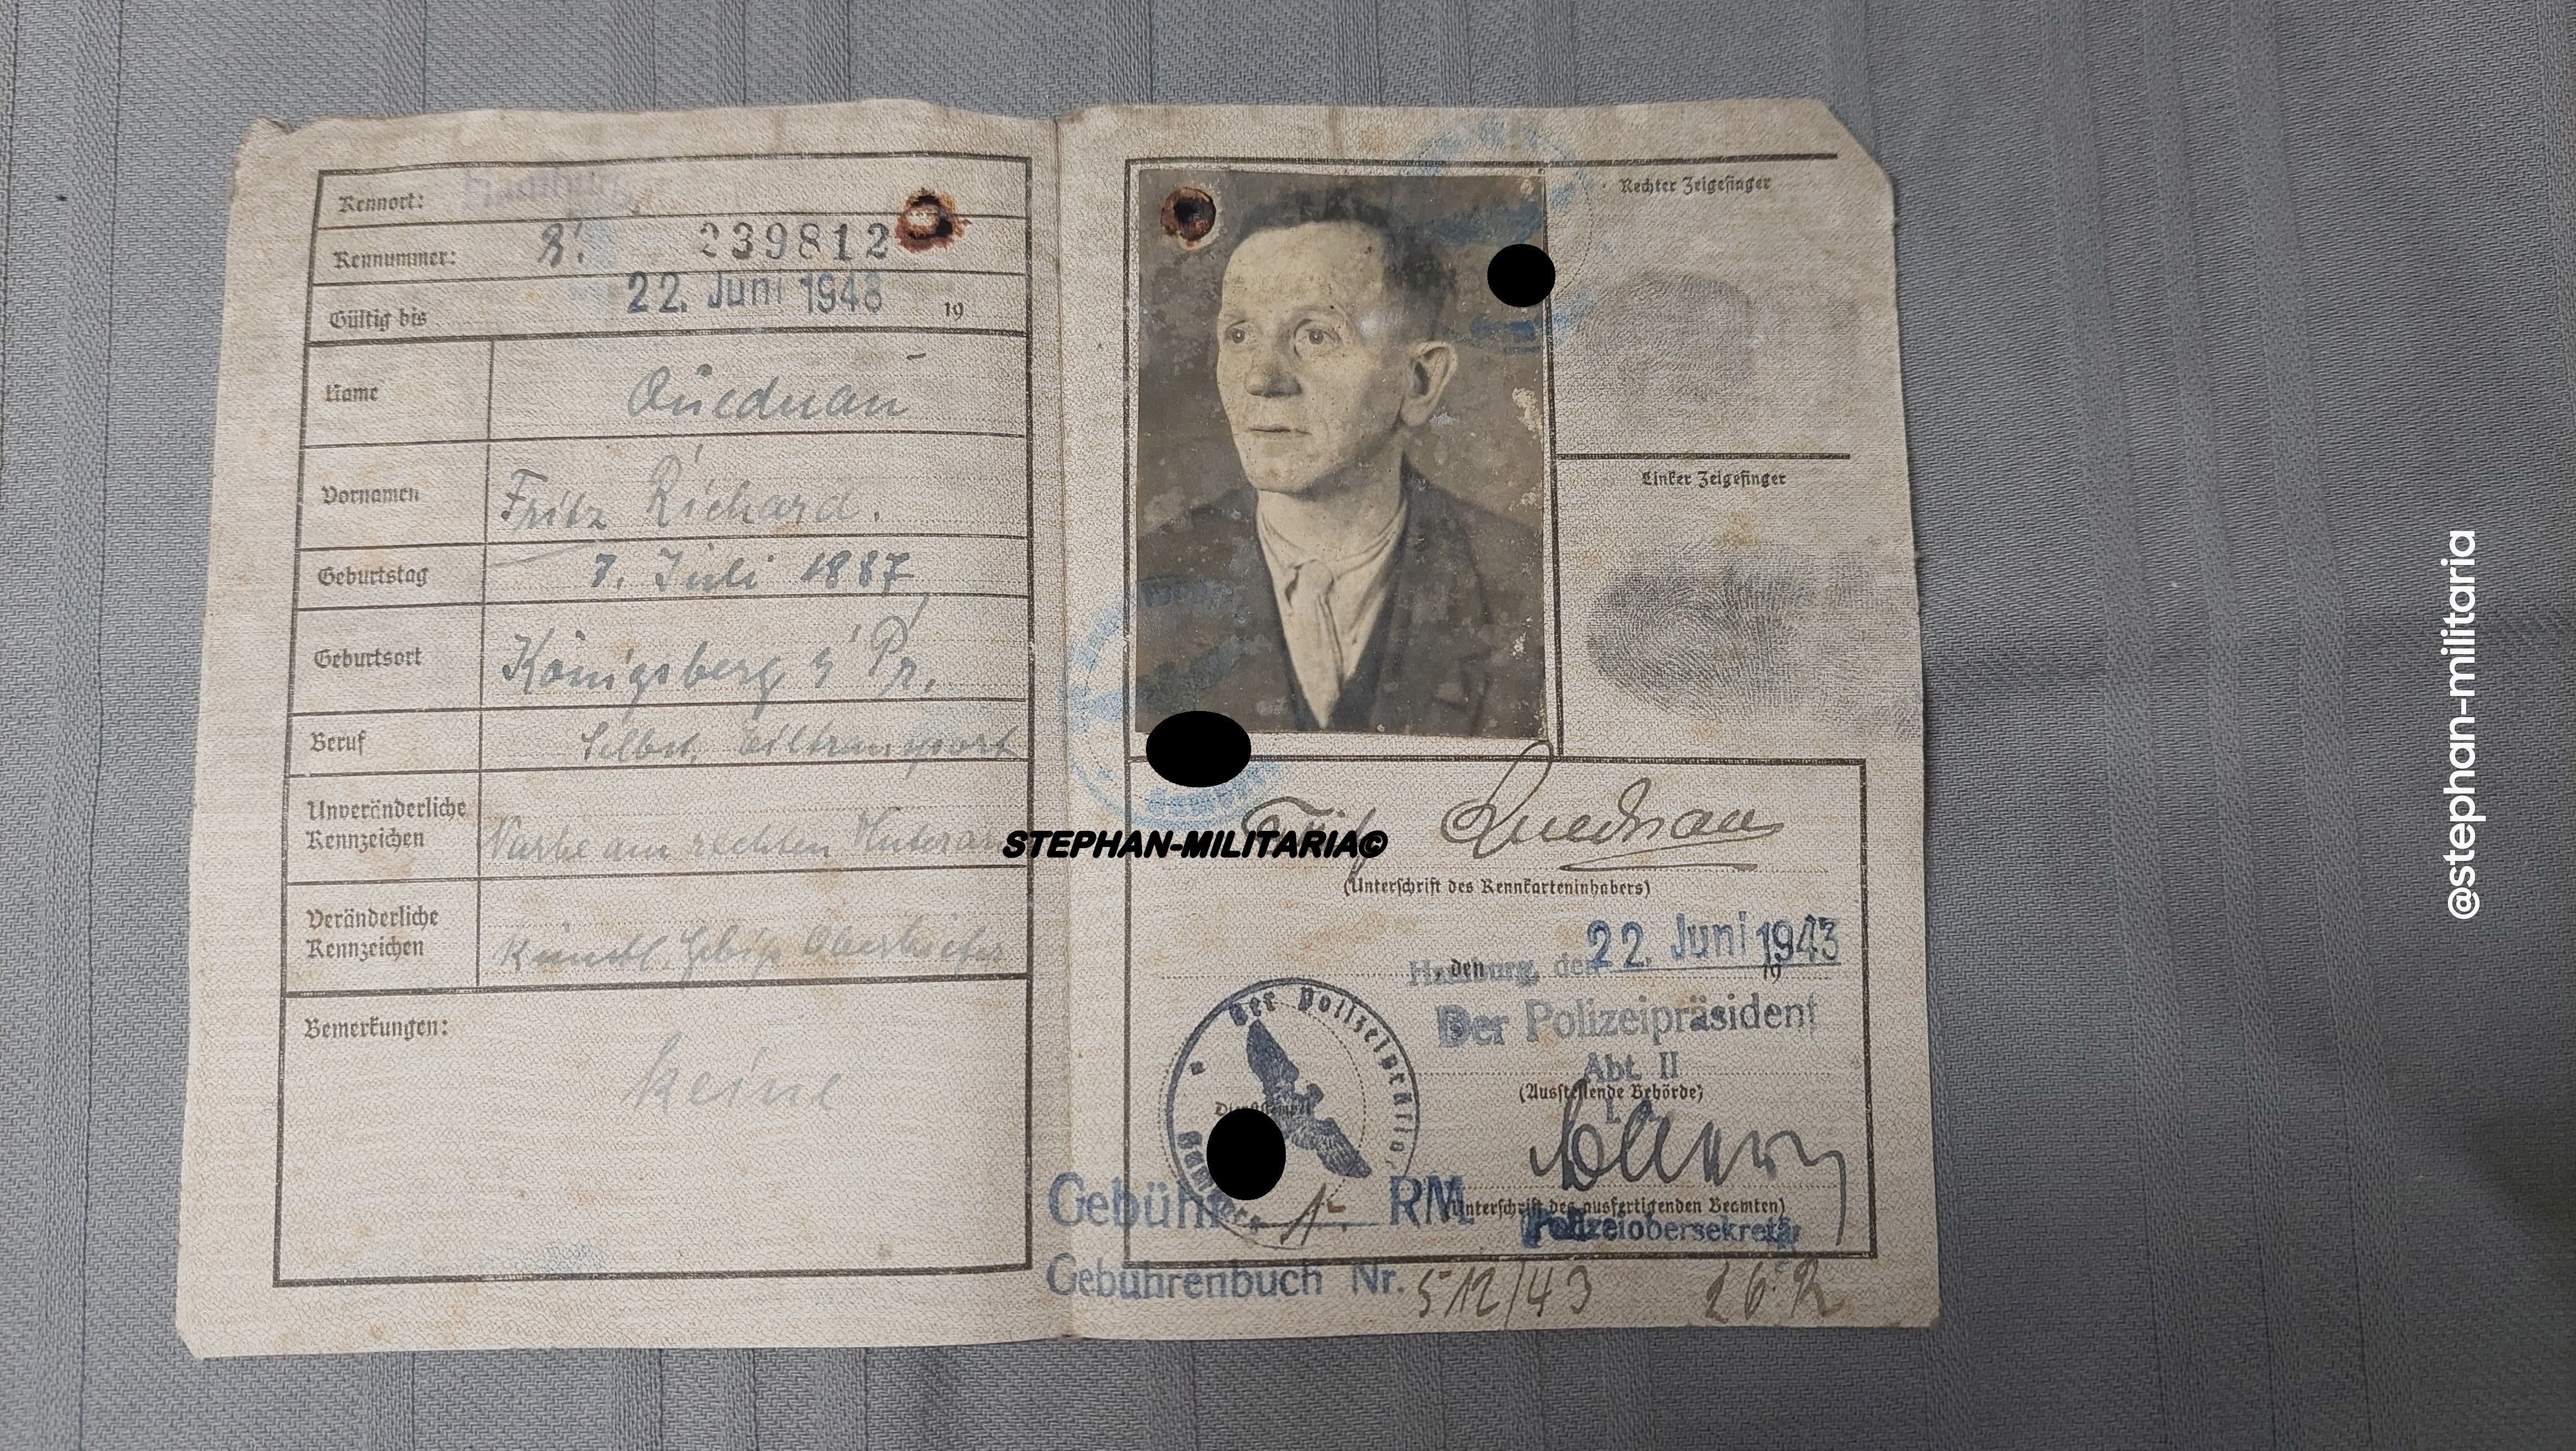 Kennort: Hamburg
Kennummer: 239812
Gültig bis 22. Juni 1948 19
Name Quednau
Vornamen Fritz Richard.
Geburtstag 7. Juli 1887
Geburtsort Königsberg i/Pr.
Beruf Selbst. Eiltransport
Unveränderliche
Kennzeichen Narbe am rechten
Veränderliche
Kennzeichen Künstl. Gebiß Oberkiefer
Bemerkungen:
keine
Rechter Zeigefinger
Linker Zeigefinger
Fritz Quednau
(Unterschrift des Kennkarteninhabers)
Hamburg, den 22. Juni 1943
, den 19
Der Polizeipräsident
Abt. II
(Ausstellende Behörde)
Der Polizeipräsident
Hamburg
Dienststempel
(Unterschrift des ausfertigenden Beamten)
Polizeiobersekretär
Gebühr 1.- RM
Gebührenbuch Nr. 512/43
STEPHAN-MILITARIA©
@stephan-militaria